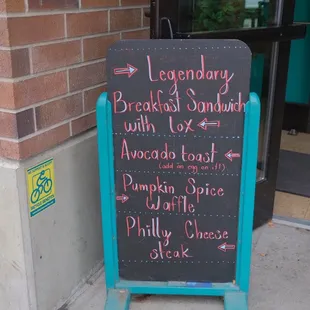 Legendary
Breakfast Sandwich
with Lox
Avocado toast
(add an egg on it!!)
Pumpkin Spice
Waffle
Philly Cheese
steak